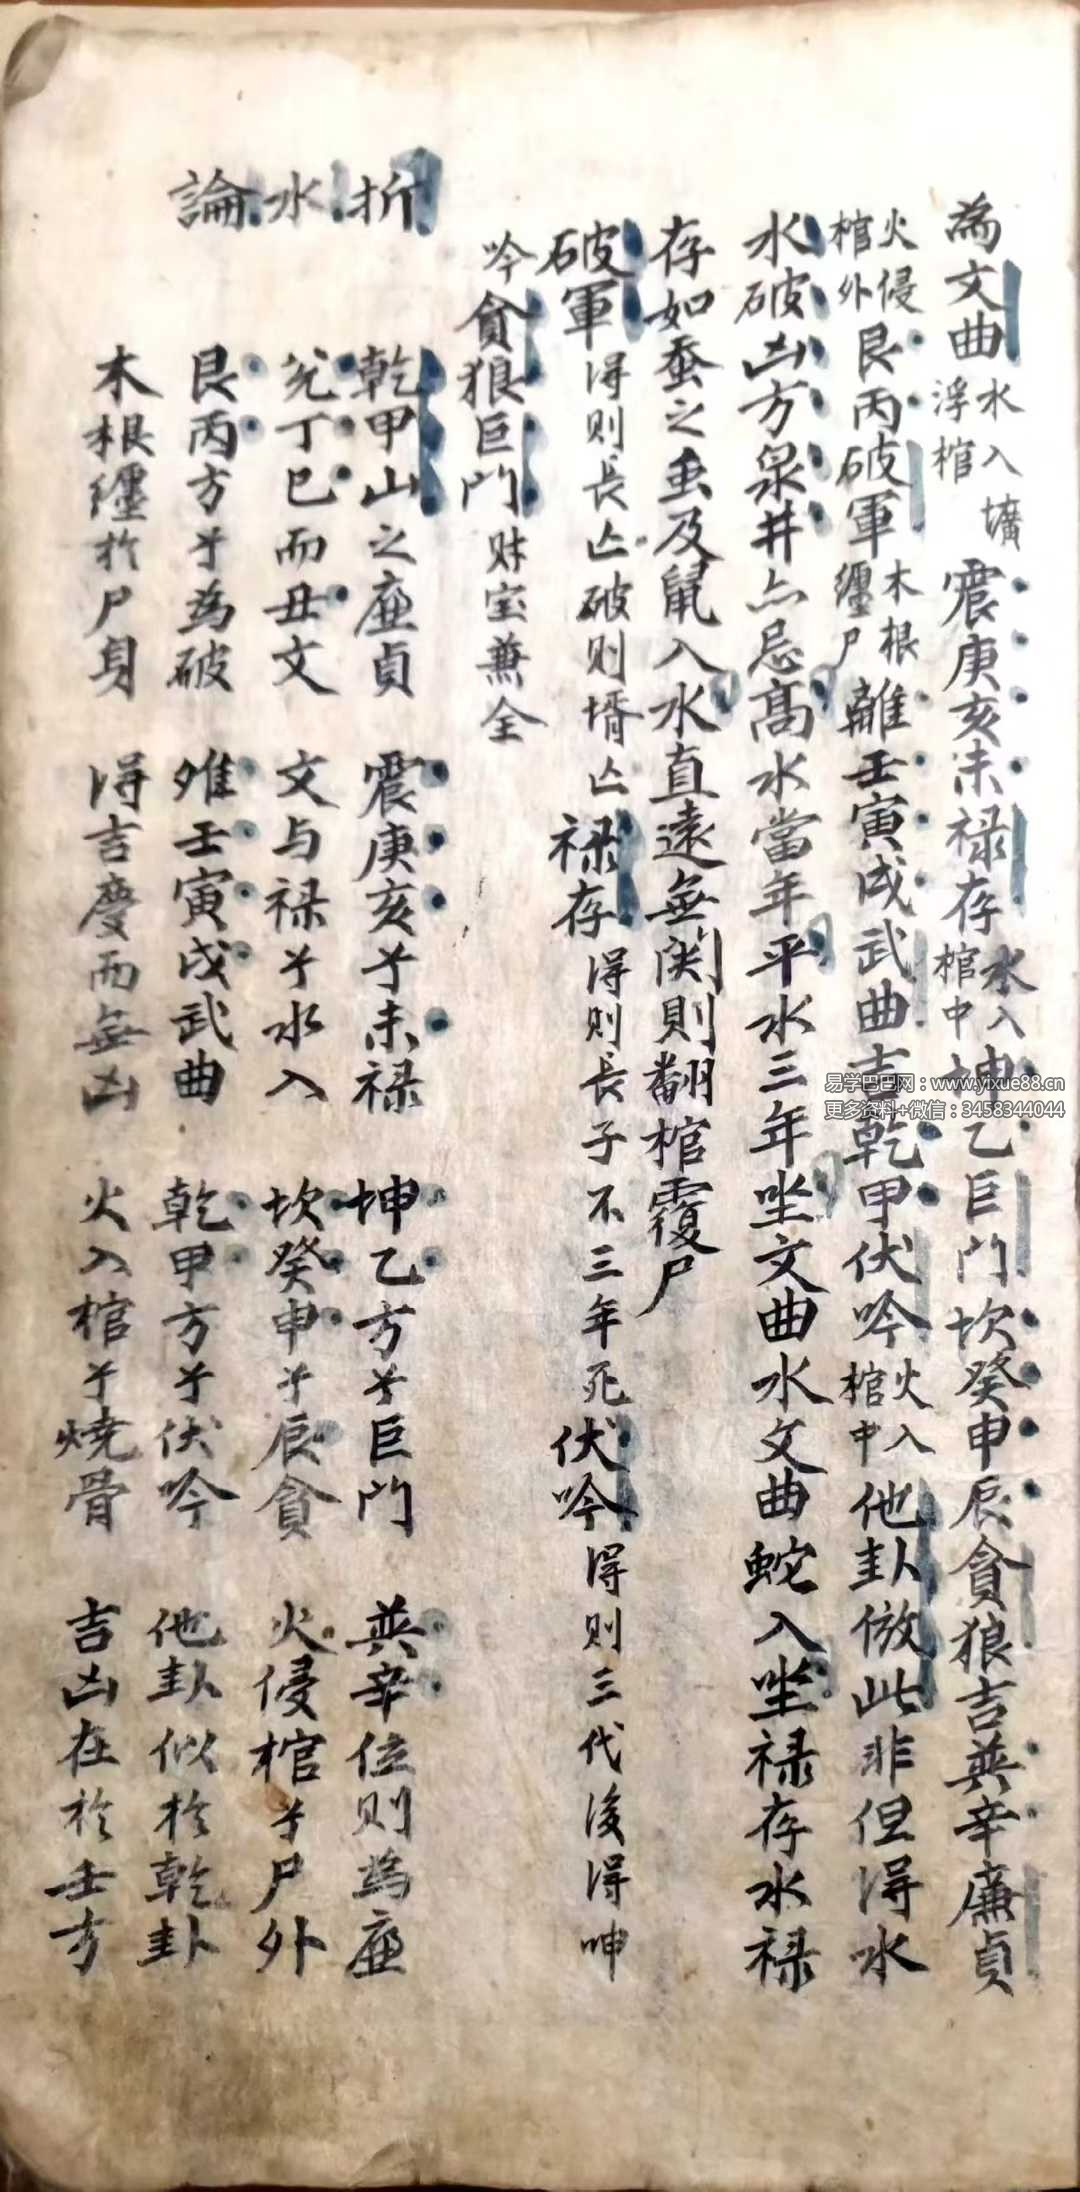 為文曲水入壙浮棺震庚亥未禄存水入棺中坤乙巨門坎癸申辰貪狼吉巽辛廉貞
火侵棺外艮丙破軍木根纏尸離壬寅戌武曲吉乾甲伏吟火入棺中他卦倣此非但得水
水破凶方泉井亦忌高水當年平水三年坐文曲水文曲蛇入坐禄存水禄
存如蚕之虫及鼠入水直遠無関則翻棺覆尸
破軍得則長亡破則壻亡禄存得則長子不三年死伏吟得則三代後得呻
吟貪狼巨門財宝兼全
折水論
乾甲山之廉貞 震庚亥兮未禄 坤乙方兮巨門 巽辛位則為廉
兌丁巳而丑文 文与禄兮水入 坎癸申兮辰貪 火侵棺兮尸外
艮丙方兮為破 难壬寅戌武曲 乾甲方兮伏吟 他卦似於乾卦
木根纏於尸身 得吉慶而無凶 火入棺兮燒骨 吉凶在於壬方
易学巴巴网：www.yixue88.cn
更多资料+微信：3458344044